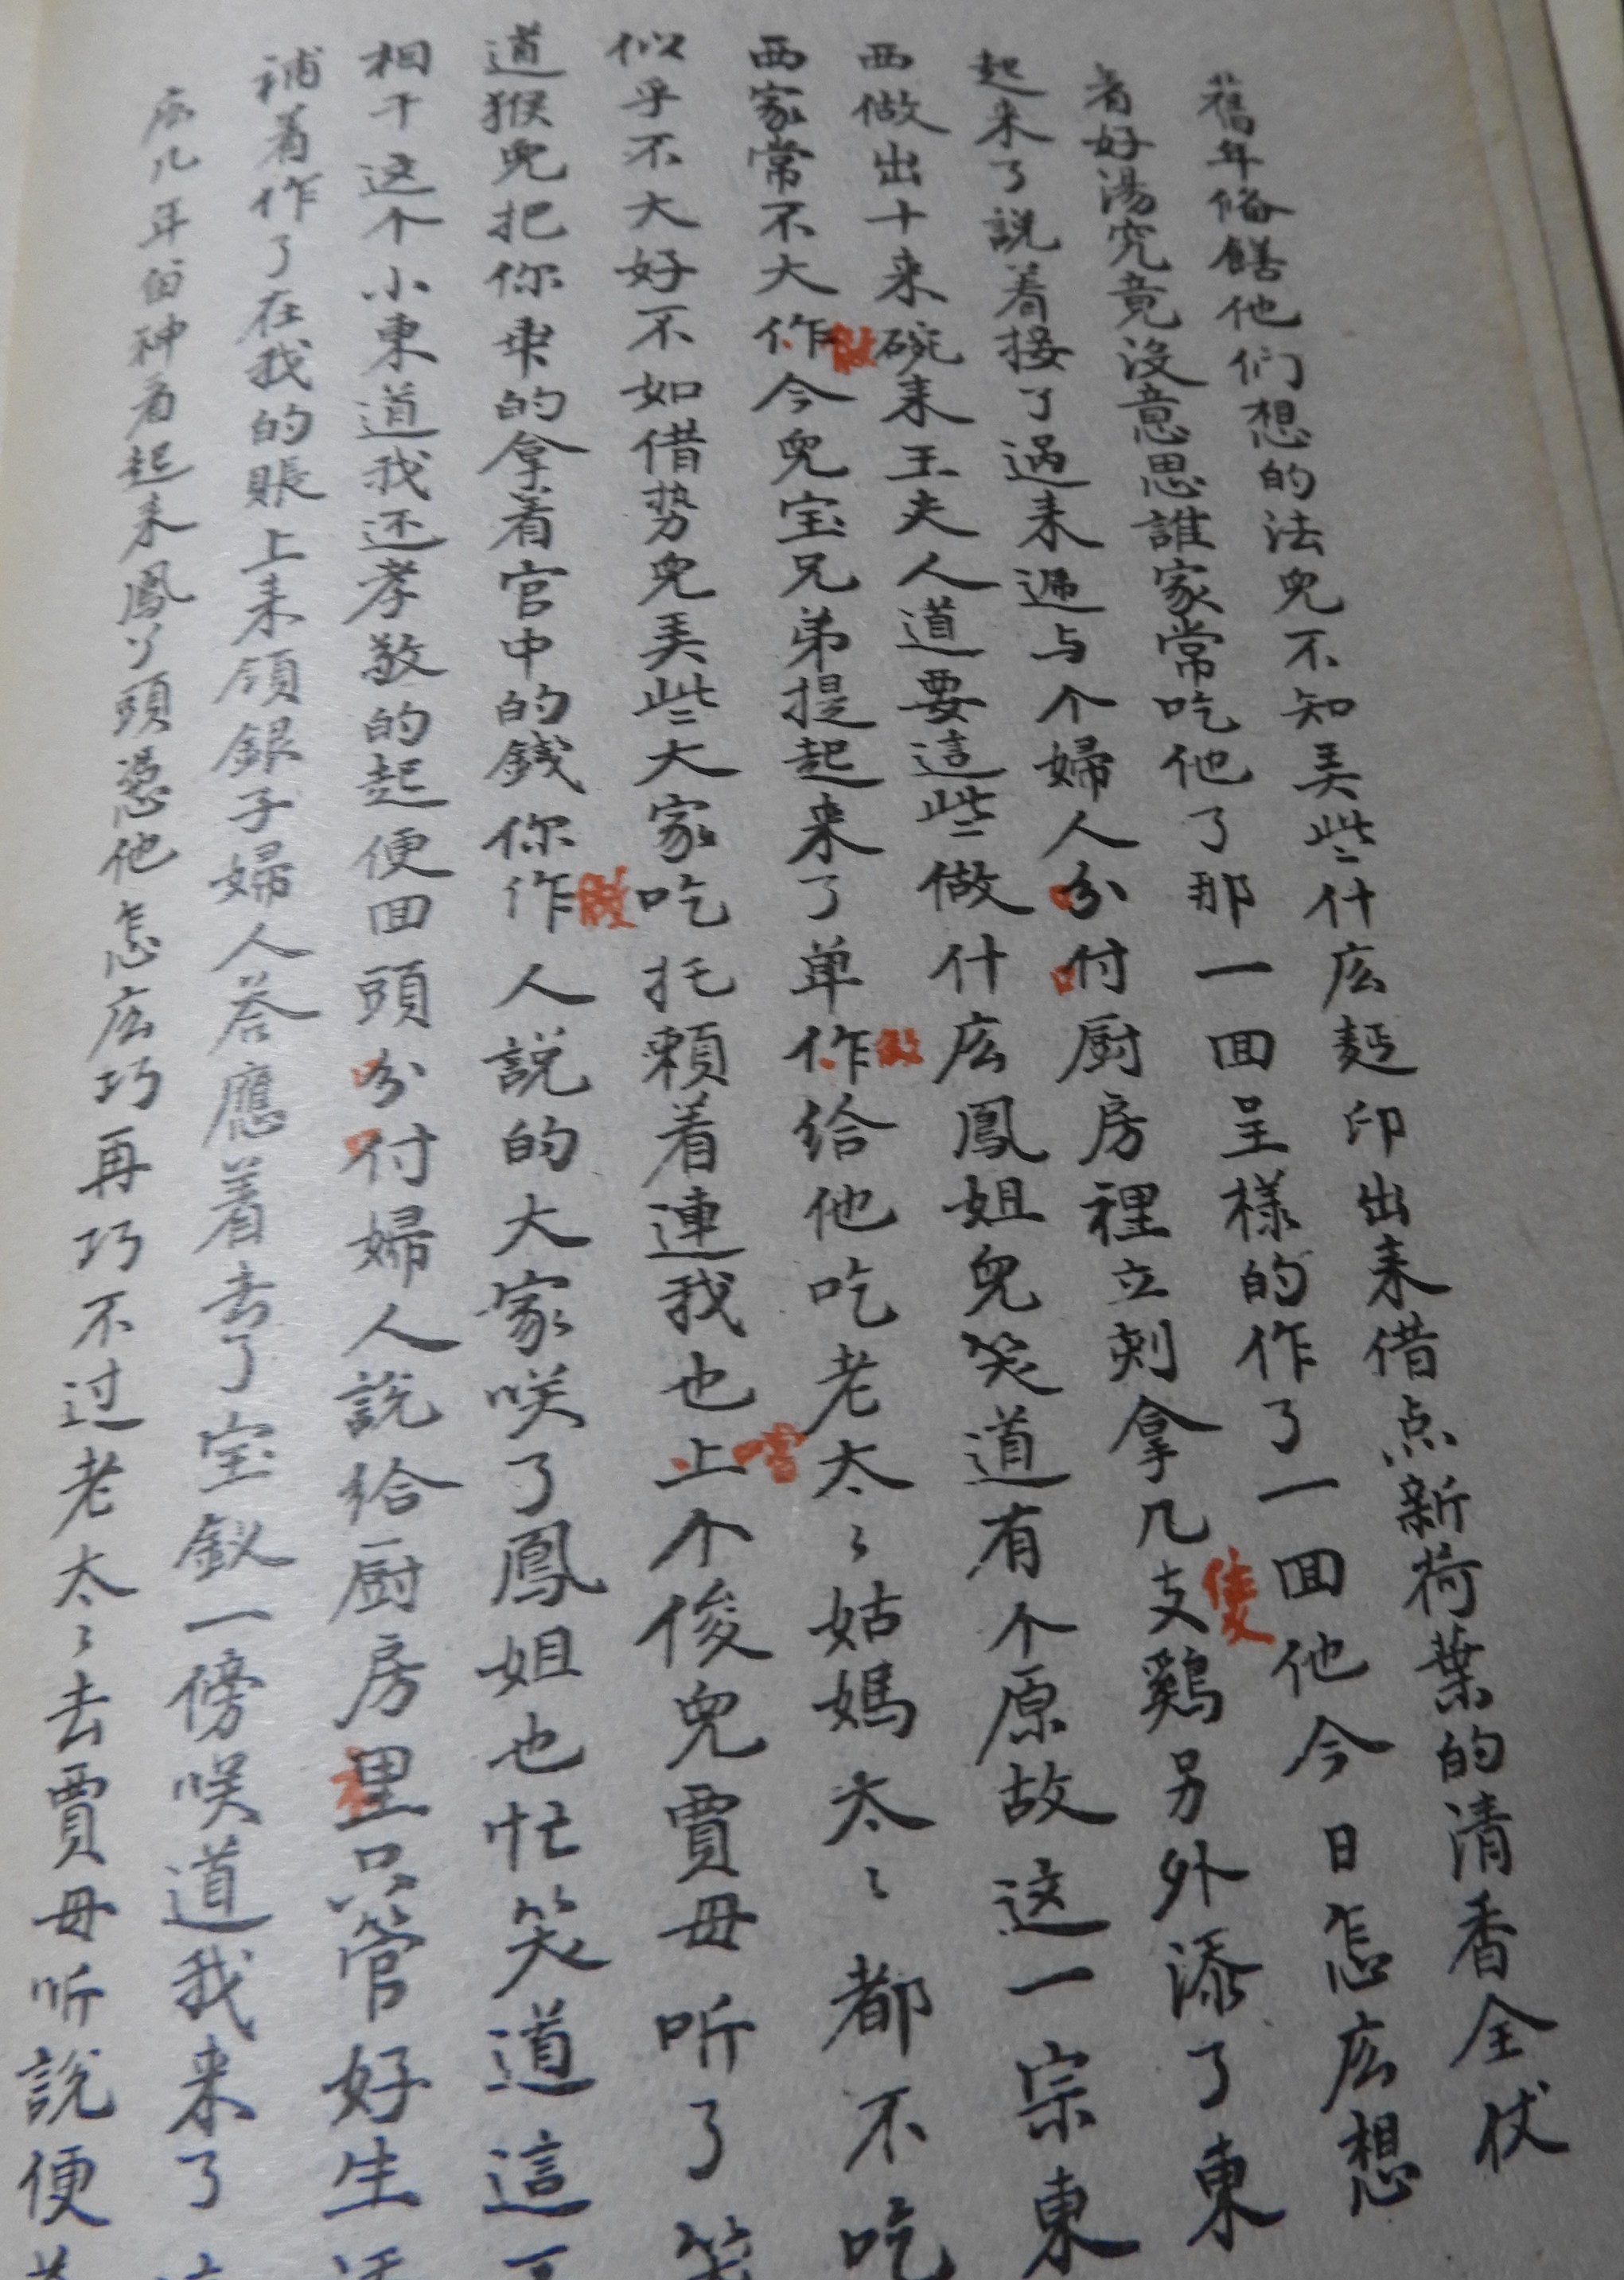 舊年俻饍他們想的法兒不知美些什庅麪印出来借点新荷葉的清香全仗
着好湯究竟没意思誰家常吃他了那一回呈樣的作了一回他今日怎庅想
起来了說着接了过来遞与个婦人分付厨房裡立刻拿几支隻鷄另外添了東
西做出十来碗来王夫人道要這些做什庅鳳姐兒笑道有个原故这一宗東
西家常不大作做今兒宝兄弟提起来了单作做給他吃老太〻姑媽太〻都不吃
似乎不大好不如借势兒美些大家吃托賴着連我也上嘗个俊兒賈母听了笑
道猴兒把你乖的拿着官中的錢你作做人說的大家咲了鳳姐也忙笑道這
相干这个小東道我还孝敬的起便回頭分付婦人說給厨房里只管好生
補着作了在我的賬上来領銀子婦人荅應着去了宝釵一傍咲道我来了
庅几年留神看起来鳳丫頭憑他怎庅巧再巧不过老太〻去賈母听説便